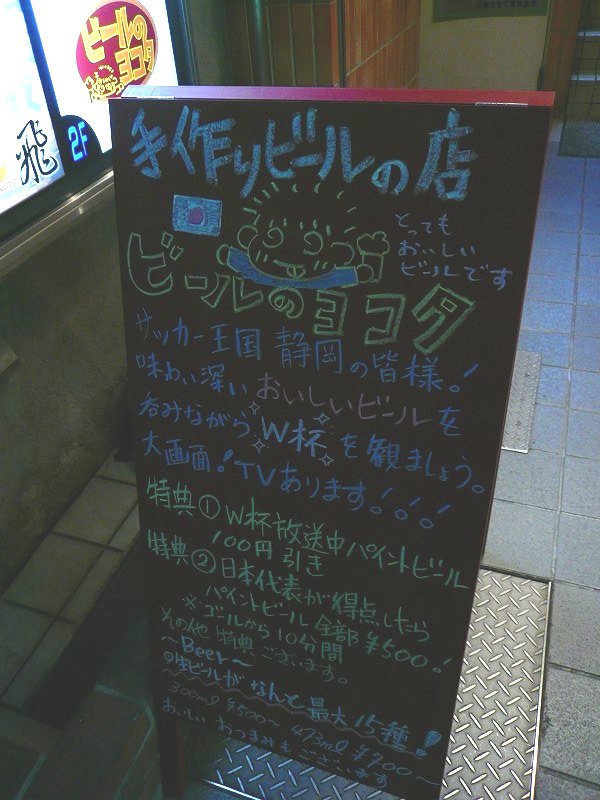 ビールの
ヨコタ
飛
2F
手作りビールの店
とっても
おいしい
ビールです
ビールのヨコタ
サッカー王国 静岡の皆様!
味わい深いおいしいビールを
呑みながらW杯を観ましょう。
大画面!TVあります!!!
特典① W杯放送中パイントビール
100円引き
特典② 日本代表が得点したら
パイントビール全部¥500!
※ゴールから10分間
その他特典ございます。
~Beer~
生ビールがなんと最大15種!
300ml ¥500~ 473ml ¥900~
おいしいおつまみもございます